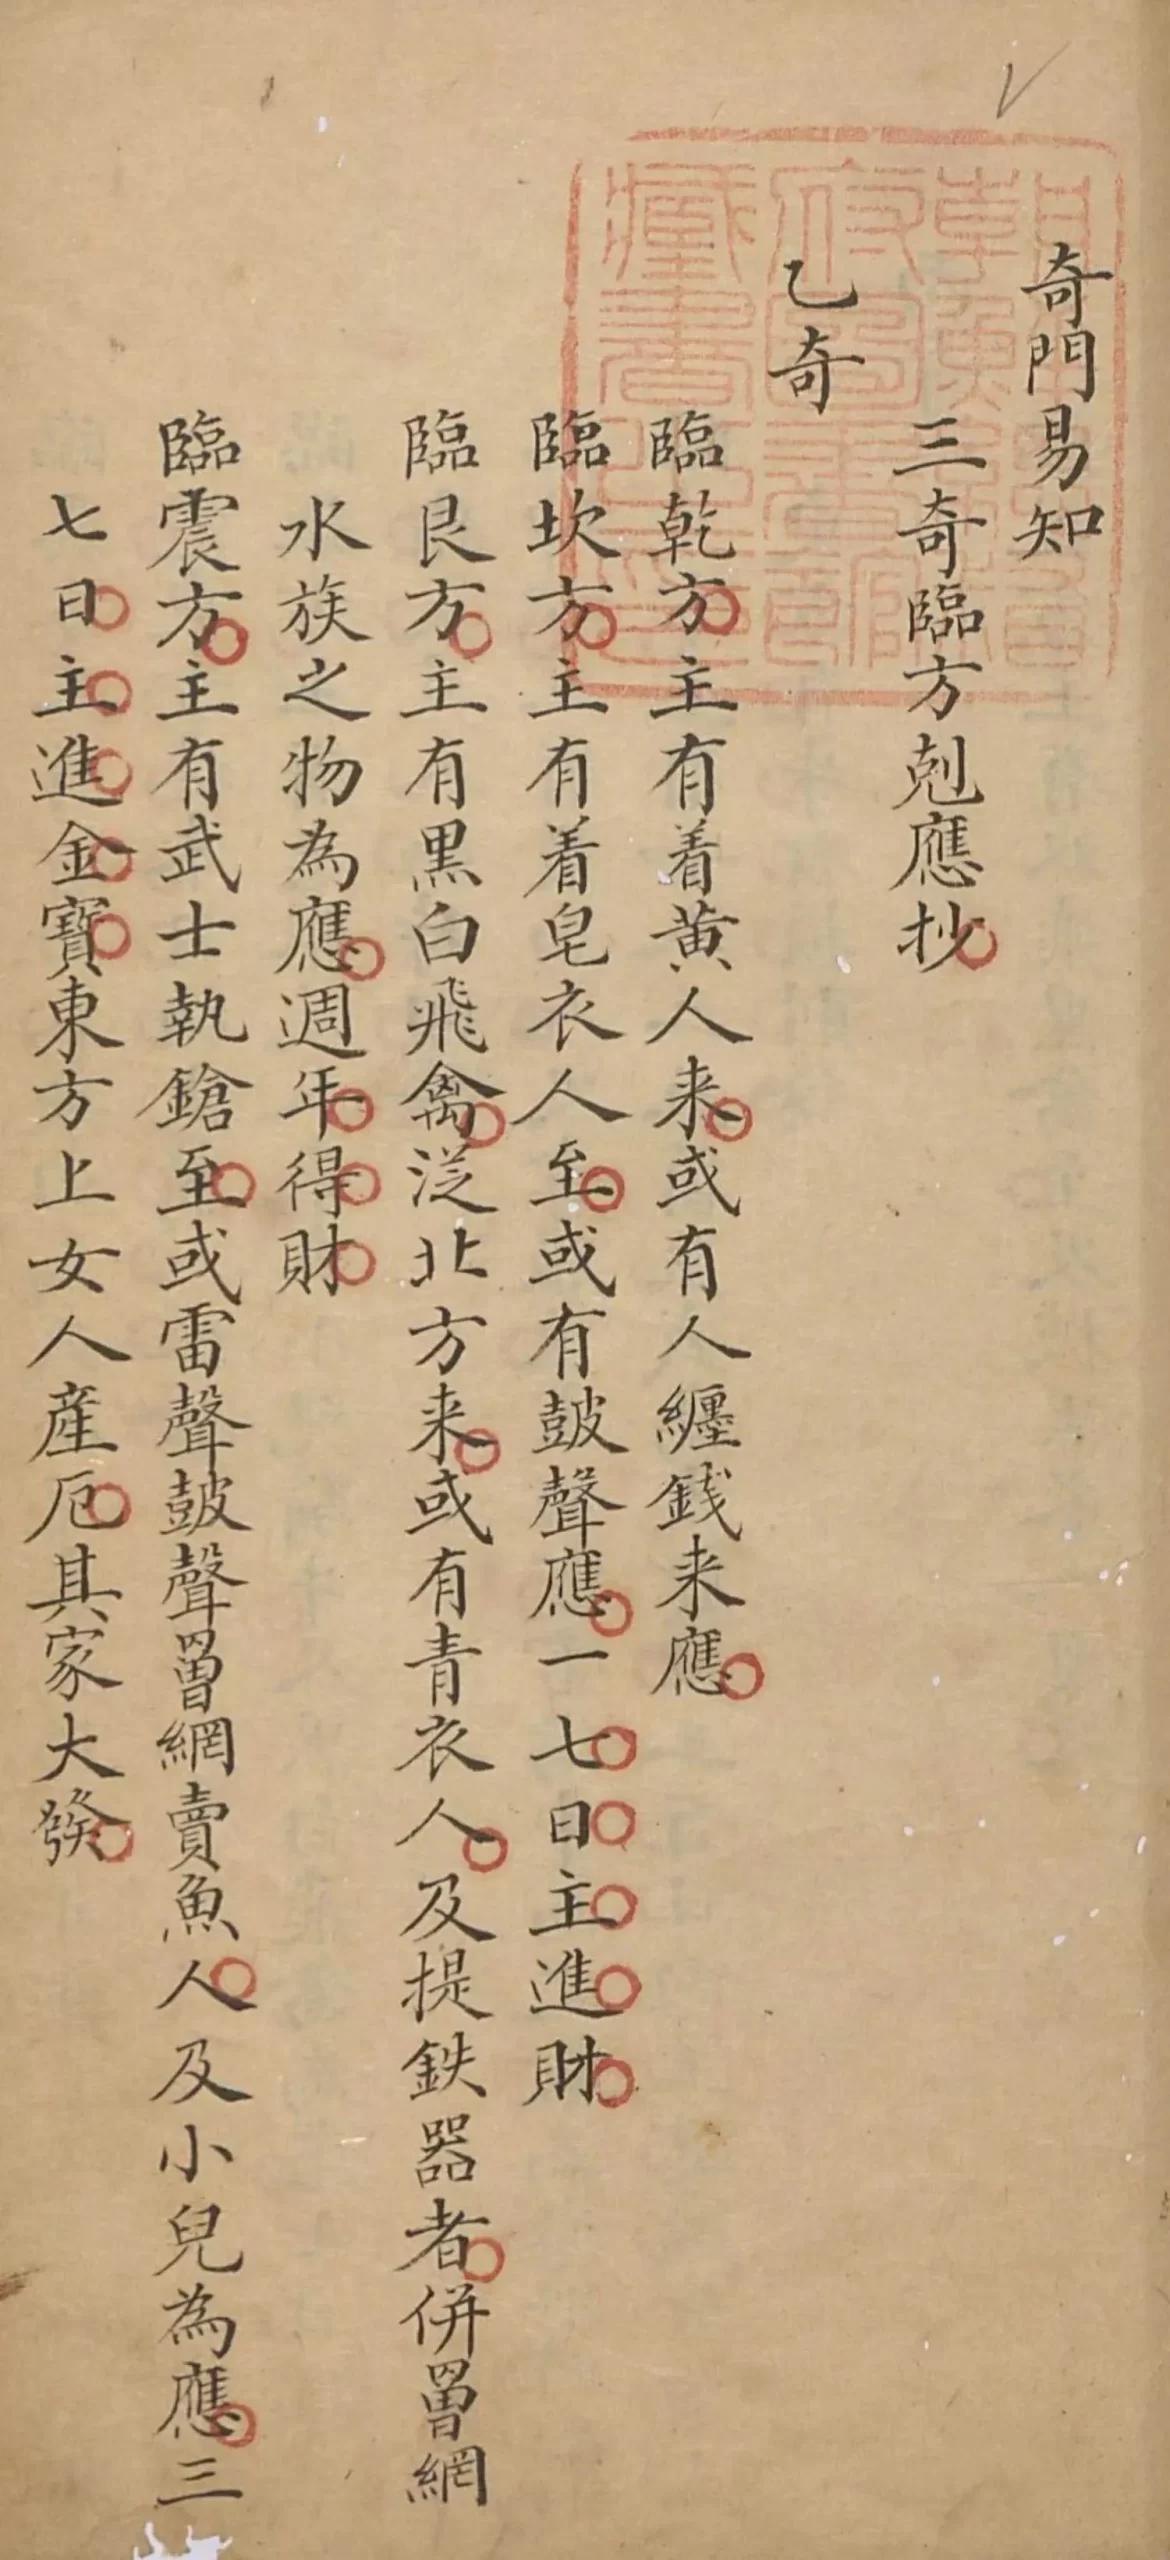 奇門易知
三奇臨方剋應抄
乙奇
臨乾方主有着黄人来或有人纏銭来應
臨坎方主有着皂衣人至或有皷聲應一七日主進財
臨艮方主有黒白飛禽泛北方来或有青衣人及提鉄器者併罾網
水族之物為應週年得財
臨震方主有武士執鎗至或雷聲皷聲罾網賣魚人及小兒為應三
七日主進金寳東方上女人産厄其家大發
朝鮮總督府圖書館藏書之印